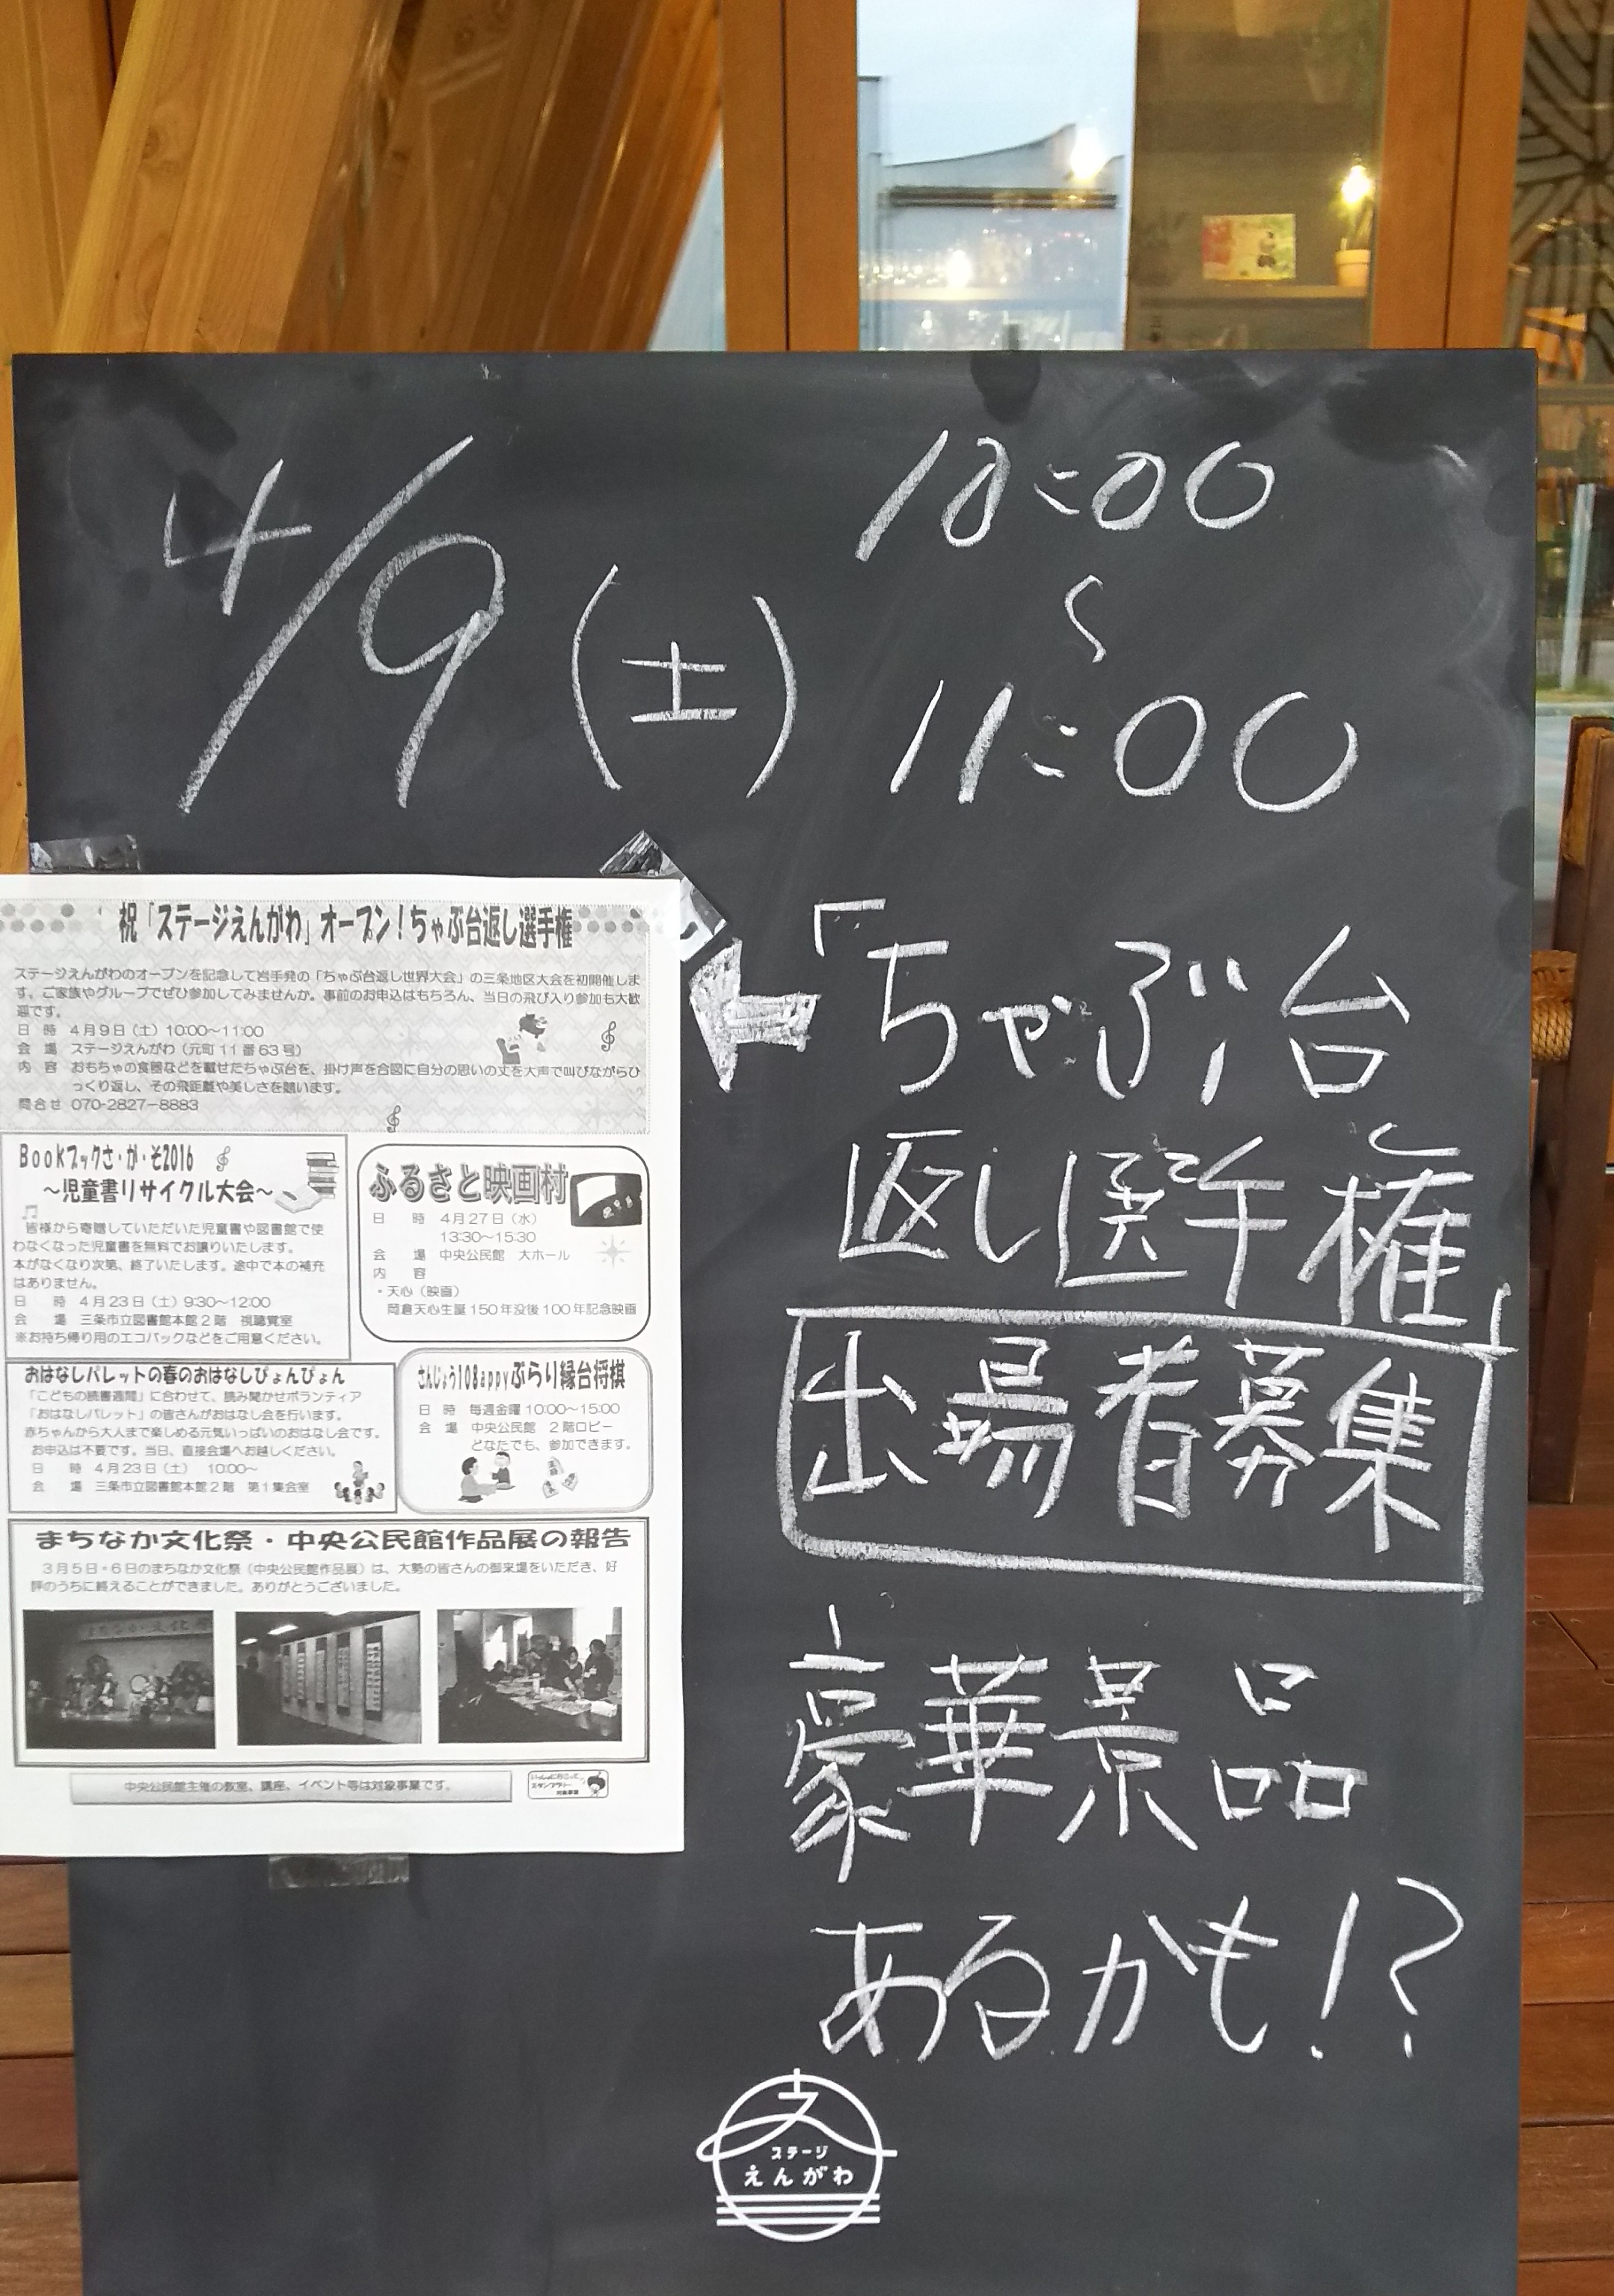 4/9(土)
10:00
〜
11:00
「ちゃぶ台
返し選手権」
出場者募集
豪華景品
あるかも!?
祝「ステージえんがわ」オープン!ちゃぶ台返し選手権
ステージえんがわのオープンを記念して岩手発の「ちゃぶ台返し世界大会」の三条地区大会を初開催しま
す。ご家族やグループでぜひ参加してみませんか。事前のお申込はもちろん、当日の飛び入り参加も大歓
迎です。
日 時 4月9日(土)10:00〜11:00
会 場 ステージえんがわ(元町11番63号)
内 容 おもちゃの食器などを載せたちゃぶ台を、掛け声を合図に自分の思いの丈を大声で叫びながらひ
っくり返し、その飛距離や美しさを競います。
問合せ 070-2827-8883
Bookブックさ・が・そ2016
〜児童書リサイクル大会〜
皆様から寄贈していただいた児童書や図書館で使
わなくなった児童書を無料でお譲りいたします。
本がなくなり次第、終了いたします。途中で本の補充
はありません。
日 時 4月23日(土)9:30〜12:00
会 場 三条市立図書館本館2階 視聴覚室
※お持ち帰り用のエコバックなどをご用意ください。
ふるさと映画村
日 時 4月27日(水)
13:30〜15:30
会 場 中央公民館 大ホール
内 容
・天心(映画)
岡倉天心生誕150年没後100年記念映画
おはなしパレットの春のおはなしぴょんぴょん
「こどもの読書週間」に合わせて、読み聞かせボランティア
「おはなしパレット」の皆さんがおはなし会を行います。
赤ちゃんから大人まで楽しめる元気いっぱいのおはなし会です。
お申込は不要です。当日、直接会場へお越しください。
日 時 4月23日(土) 10:00〜
会 場 三条市立図書館本館2階 第1集会室
さんじょう108appyぶらり縁台将棋
日 時 毎週金曜10:00〜15:00
会 場 中央公民館 2階ロビー
どなたでも、参加できます。
まちなか文化祭・中央公民館作品展の報告
3月5日・6日のまちなか文化祭(中央公民館作品展)は、大勢の皆さんの御来場をいただき、好
評のうちに終えることができました。ありがとうございました。
中央公民館主催の教室、講座、イベント等は対象事業です。
ステージ
えんがわ